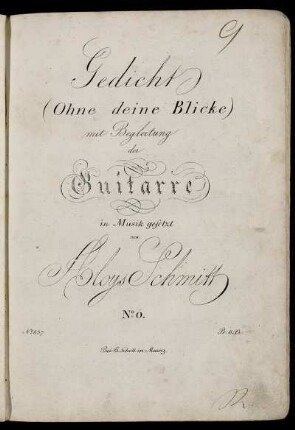 Gedicht
(Ohne deine Blicke)
mit Begleitung
der
Guitarre
in Musik gesetzt
von
Aloys Schmitt
No. 0.
Bei B. Schott in Mainz